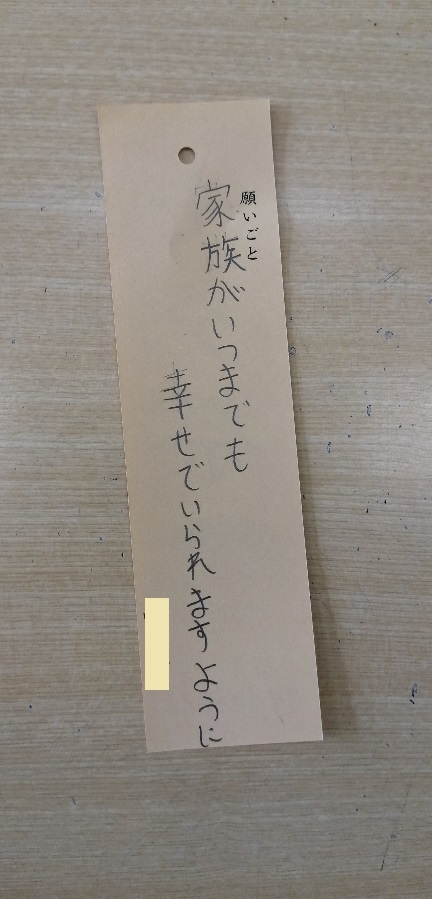 願いごと
家族がいつまでも
幸せでいられますように